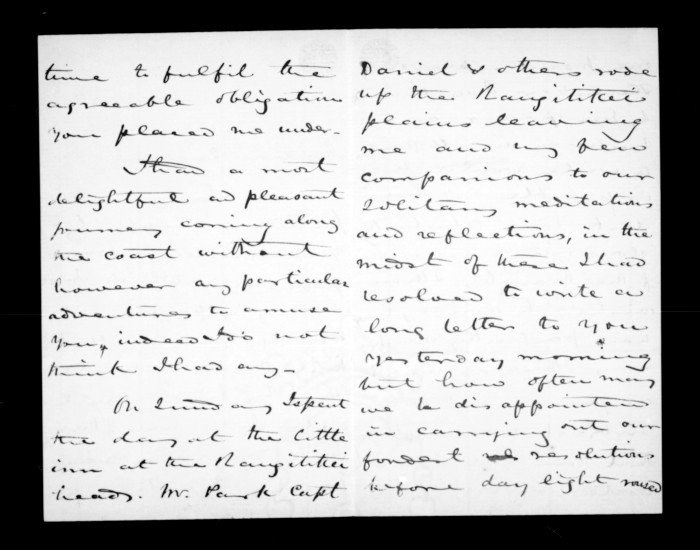 time to fulfil the
agreeable obligation
you placed me under.
I had a most
delightful and pleasant
journey coming along
the coast without
however any particular
adventures to amuse
you, indeed I do not
think I had any.
On Sunday I spent
the day at the little
inn at the Rangitikei
heads. Mr. Park Capt
Daniel & others rode
up the Rangitikei
plains leaving
me and my few
companions to our
solitary meditations
and reflections, in the
midst of these I had
resolved to write a
long letter to you
yesterday morning
but how often may
we be disappointed
in carrying out our
fondest resolutions
before day light roused